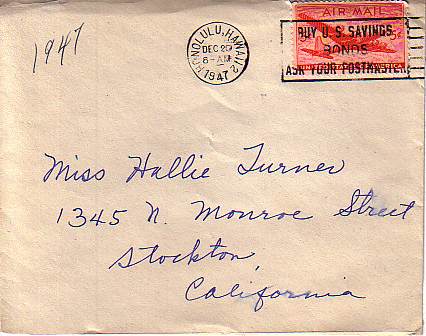 1947
HONOLULU, HAWAII 2
DEC 20
6-AM
1947
AIR MAIL
BUY U.S. SAVINGS
BONDS
ASK YOUR POSTMASTER
5¢
Miss Hallie Turner
1345 N. Monroe Street
Stockton,
California